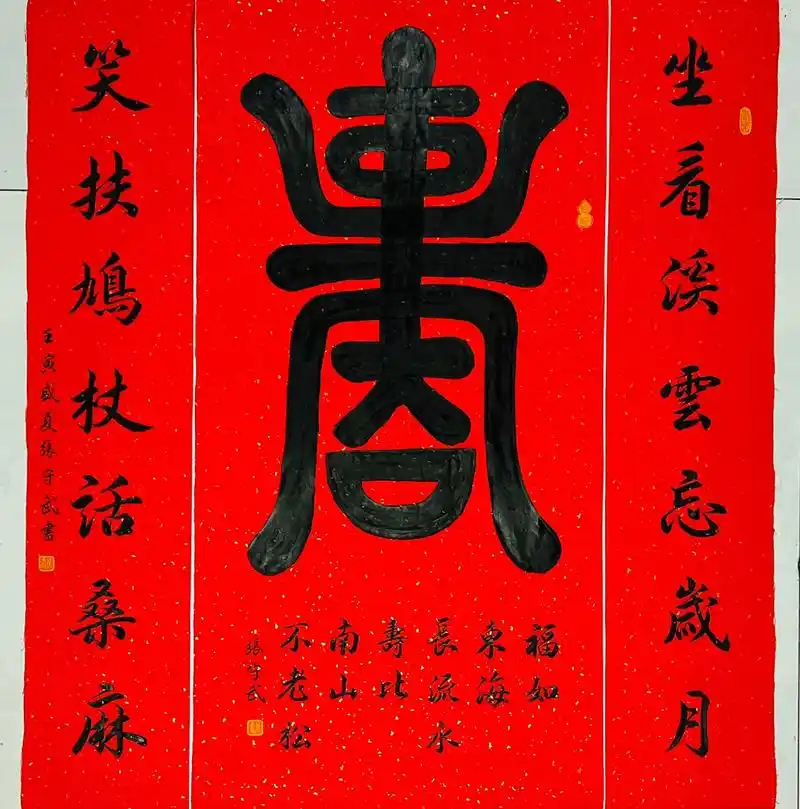 坐看溪雲忘歲月
壽
福如
東海
長流水
壽比
南山
不老松
張守武
笑扶鳩杖話桑麻
壬寅盛夏張守武書